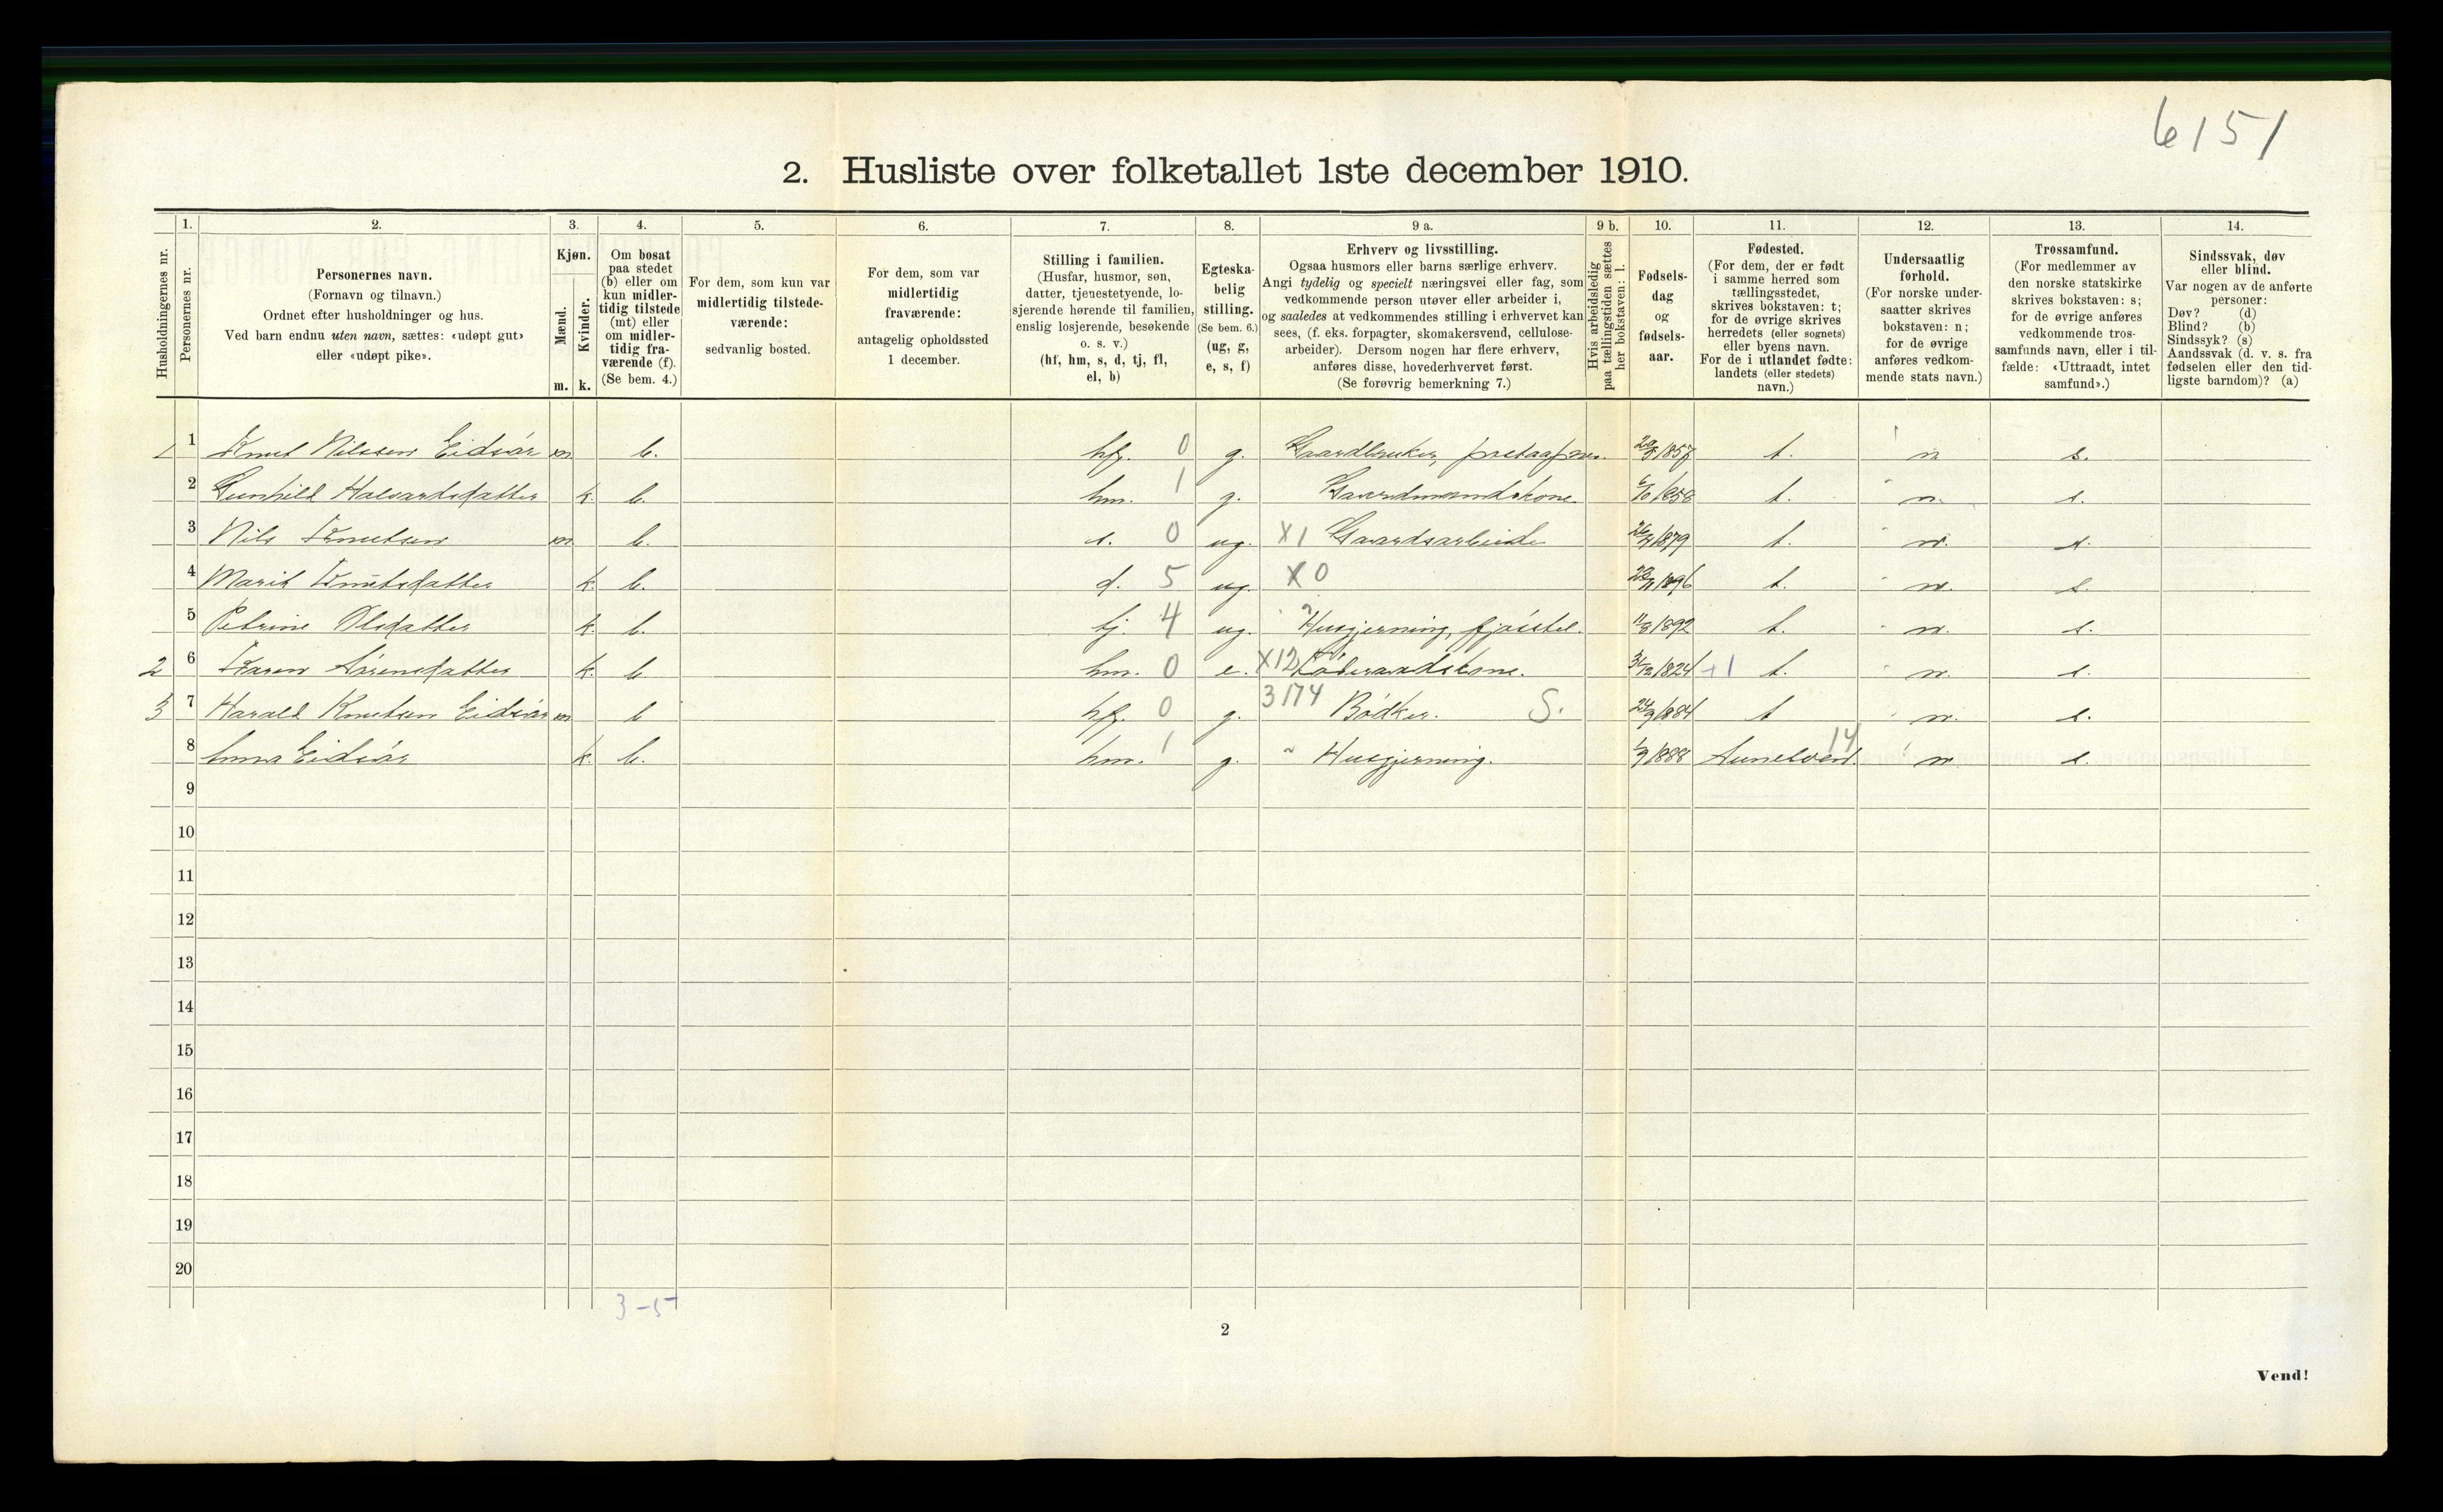 6151
2. Husliste over folketallet 1ste december 1910.
1. 2. 3. 4. 5. 6. 7. 8. 9 a. 9 b. 10. 11. 12. 13. 14.
Husholdningernes nr.
Personernes nr.
Personernes navn.
(Fornavn og tilnavn.)
Ordnet efter husholdninger og hus.
Ved barn endnu uten navn, sættes: «udøpt gut»
eller «udøpt pike».
Kjøn.
Mænd.
Kvinder.
m. k.
Om bosat
paa stedet
(b) eller om
kun midler-
tidig tilstede
(mt) eller
om midler-
tidig fra-
værende (f).
(Se bem. 4.)
For dem, som kun var
midlertidig tilstede-
værende:
sedvanlig bosted.
For dem, som var
midlertidig
fraværende:
antagelig opholdssted
1 december.
Stilling i familien.
(Husfar, husmor, søn,
datter, tjenestetyende, lo-
sjerende hørende til familien,
enslig losjerende, besøkende
o. s. v.)
(hf, hm, s, d, tj, fl,
el, b)
Egteska-
belig
stilling.
(Se bem. 6.)
(ug, g,
e, s, f)
Erhverv og livsstilling.
Ogsaa husmors eller barns særlige erhverv.
Angi tydelig og specielt næringsvei eller fag, som
vedkommende person utøver eller arbeider i,
og saaledes at vedkommendes stilling i erhvervet kan
sees, (f. eks. forpagter, skomakersvend, cellulose-
arbeider). Dersom nogen har flere erhverv,
anføres disse, hovederhvervet først.
(Se forøvrig bemerkning 7.)
Hvis arbeidsledig
paa tællingstiden sættes
her bokstaven: l.
Fødsels-
dag
og
fødsels-
aar.
Fødested.
(For dem, der er født
i samme herred som
tællingsstedet,
skrives bokstaven: t;
for de øvrige skrives
herredets (eller sognets)
eller byens navn.
For de i utlandet fødte:
landets (eller stedets)
navn.)
Undersaatlig
forhold.
(For norske under-
saatter skrives
bokstaven: n;
for de øvrige
anføres vedkom-
mende stats navn.)
Trossamfund.
(For medlemmer av
den norske statskirke
skrives bokstaven: s;
for de øvrige anføres
vedkommende tros-
samfunds navn, eller i til-
fælde: «Uttraadt, intet
samfund».)
Sindssvak, døv
eller blind.
Var nogen av de anførte
personer:
Døv? (d)
Blind? (b)
Sindssyk? (s)
Aandssvak (d. v. s. fra
fødselen eller den tid-
ligste barndom)? (a)
1 1 Knut Nilssen Eidsaar m b. hf. 0 g. Gaardbruker, 1857 t. n s.
2 Gunhild Halvardsdatter k. b. hm. 1 g. Gaardmandskone 6/10 1858 t. n. s.
3 Nils Knutsen m b. s. 0 ug. X1 Gaardsarbeide 1879 t. n. s.
4 Marit Knutsdatter k. b. d. 5 ug. X0 1896 t. n. s.
5 Petrine Olsdatter k. b. tj. 4 ug. Husgjerning, fjøsstel. 11/8 1892 t. n. s.
2 6 Karen k. b. hm. 0 e. X12 31/12 1824 +1 t. n. s.
3 7 Harald Knutsen Eidsaar m b hf. 0 g. 3174 Bødker. S. 24/9 1884 t n. s.
8 Anna Eidsaar k. b. hm. 1 g. ~ Husgjerning. 1888 14 n s.
9
10
11
12
13
14
15
16
17
18
19
20
3-5
2
Vend!